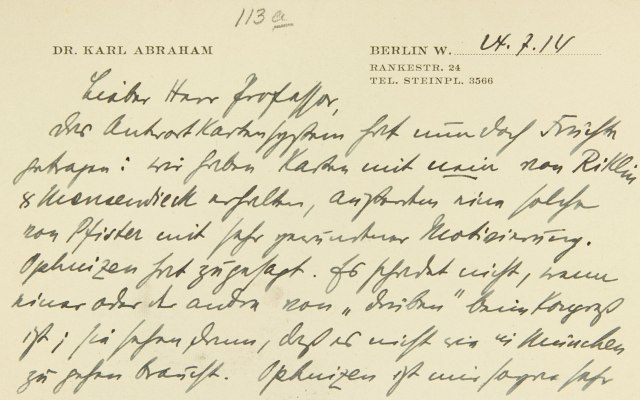 113a
DR. KARL ABRAHAM
BERLIN W. 24.7.14
RANKESTR. 24
TEL. STEINPL. 3566
Lieber Herr Professor,
das Antwortkartensystem hat nun doch Früchte
getragen: wir haben Karten mit nein von Riklin
& Mensendieck erhalten, außerdem eine solche
von Pfister mit sehr gewundener Motivierung.
Ophuizen hat zugesagt. Es schadet nicht, wenn
einer oder der andre von „drüben“ beim Kongreß
ist; sie sehen dann, daß es nicht wie in München
zu gehen braucht. Ophuizen ist mir sogar sehr